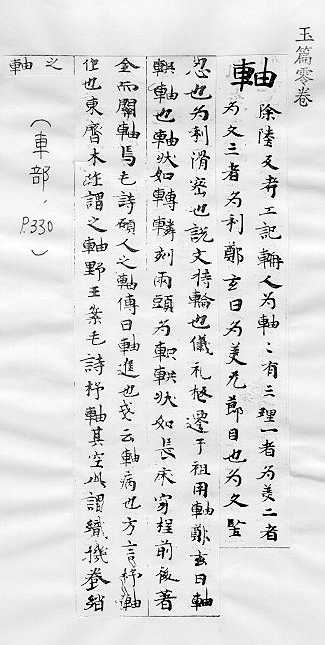 玉篇零卷
軸 除陸反考工記輈人為軸〻有三理一者為羙二者
為久三者為利鄭玄曰為美无莭目也為久堅
忍也為利滑密也說文持輪也儀礼柩遷于祖用軸鄭玄曰軸
輁軸也軸狀如轉轔刻兩頭為軹輁狀如長床穿桯前後著
金而關軸焉毛詩碩人之軸傳曰軸進也戔云軸病也方言杼軸
作也東齊木作謂之軸野王案毛詩杼軸其空此謂織機卷綃
之
軸
（車部，P.330）